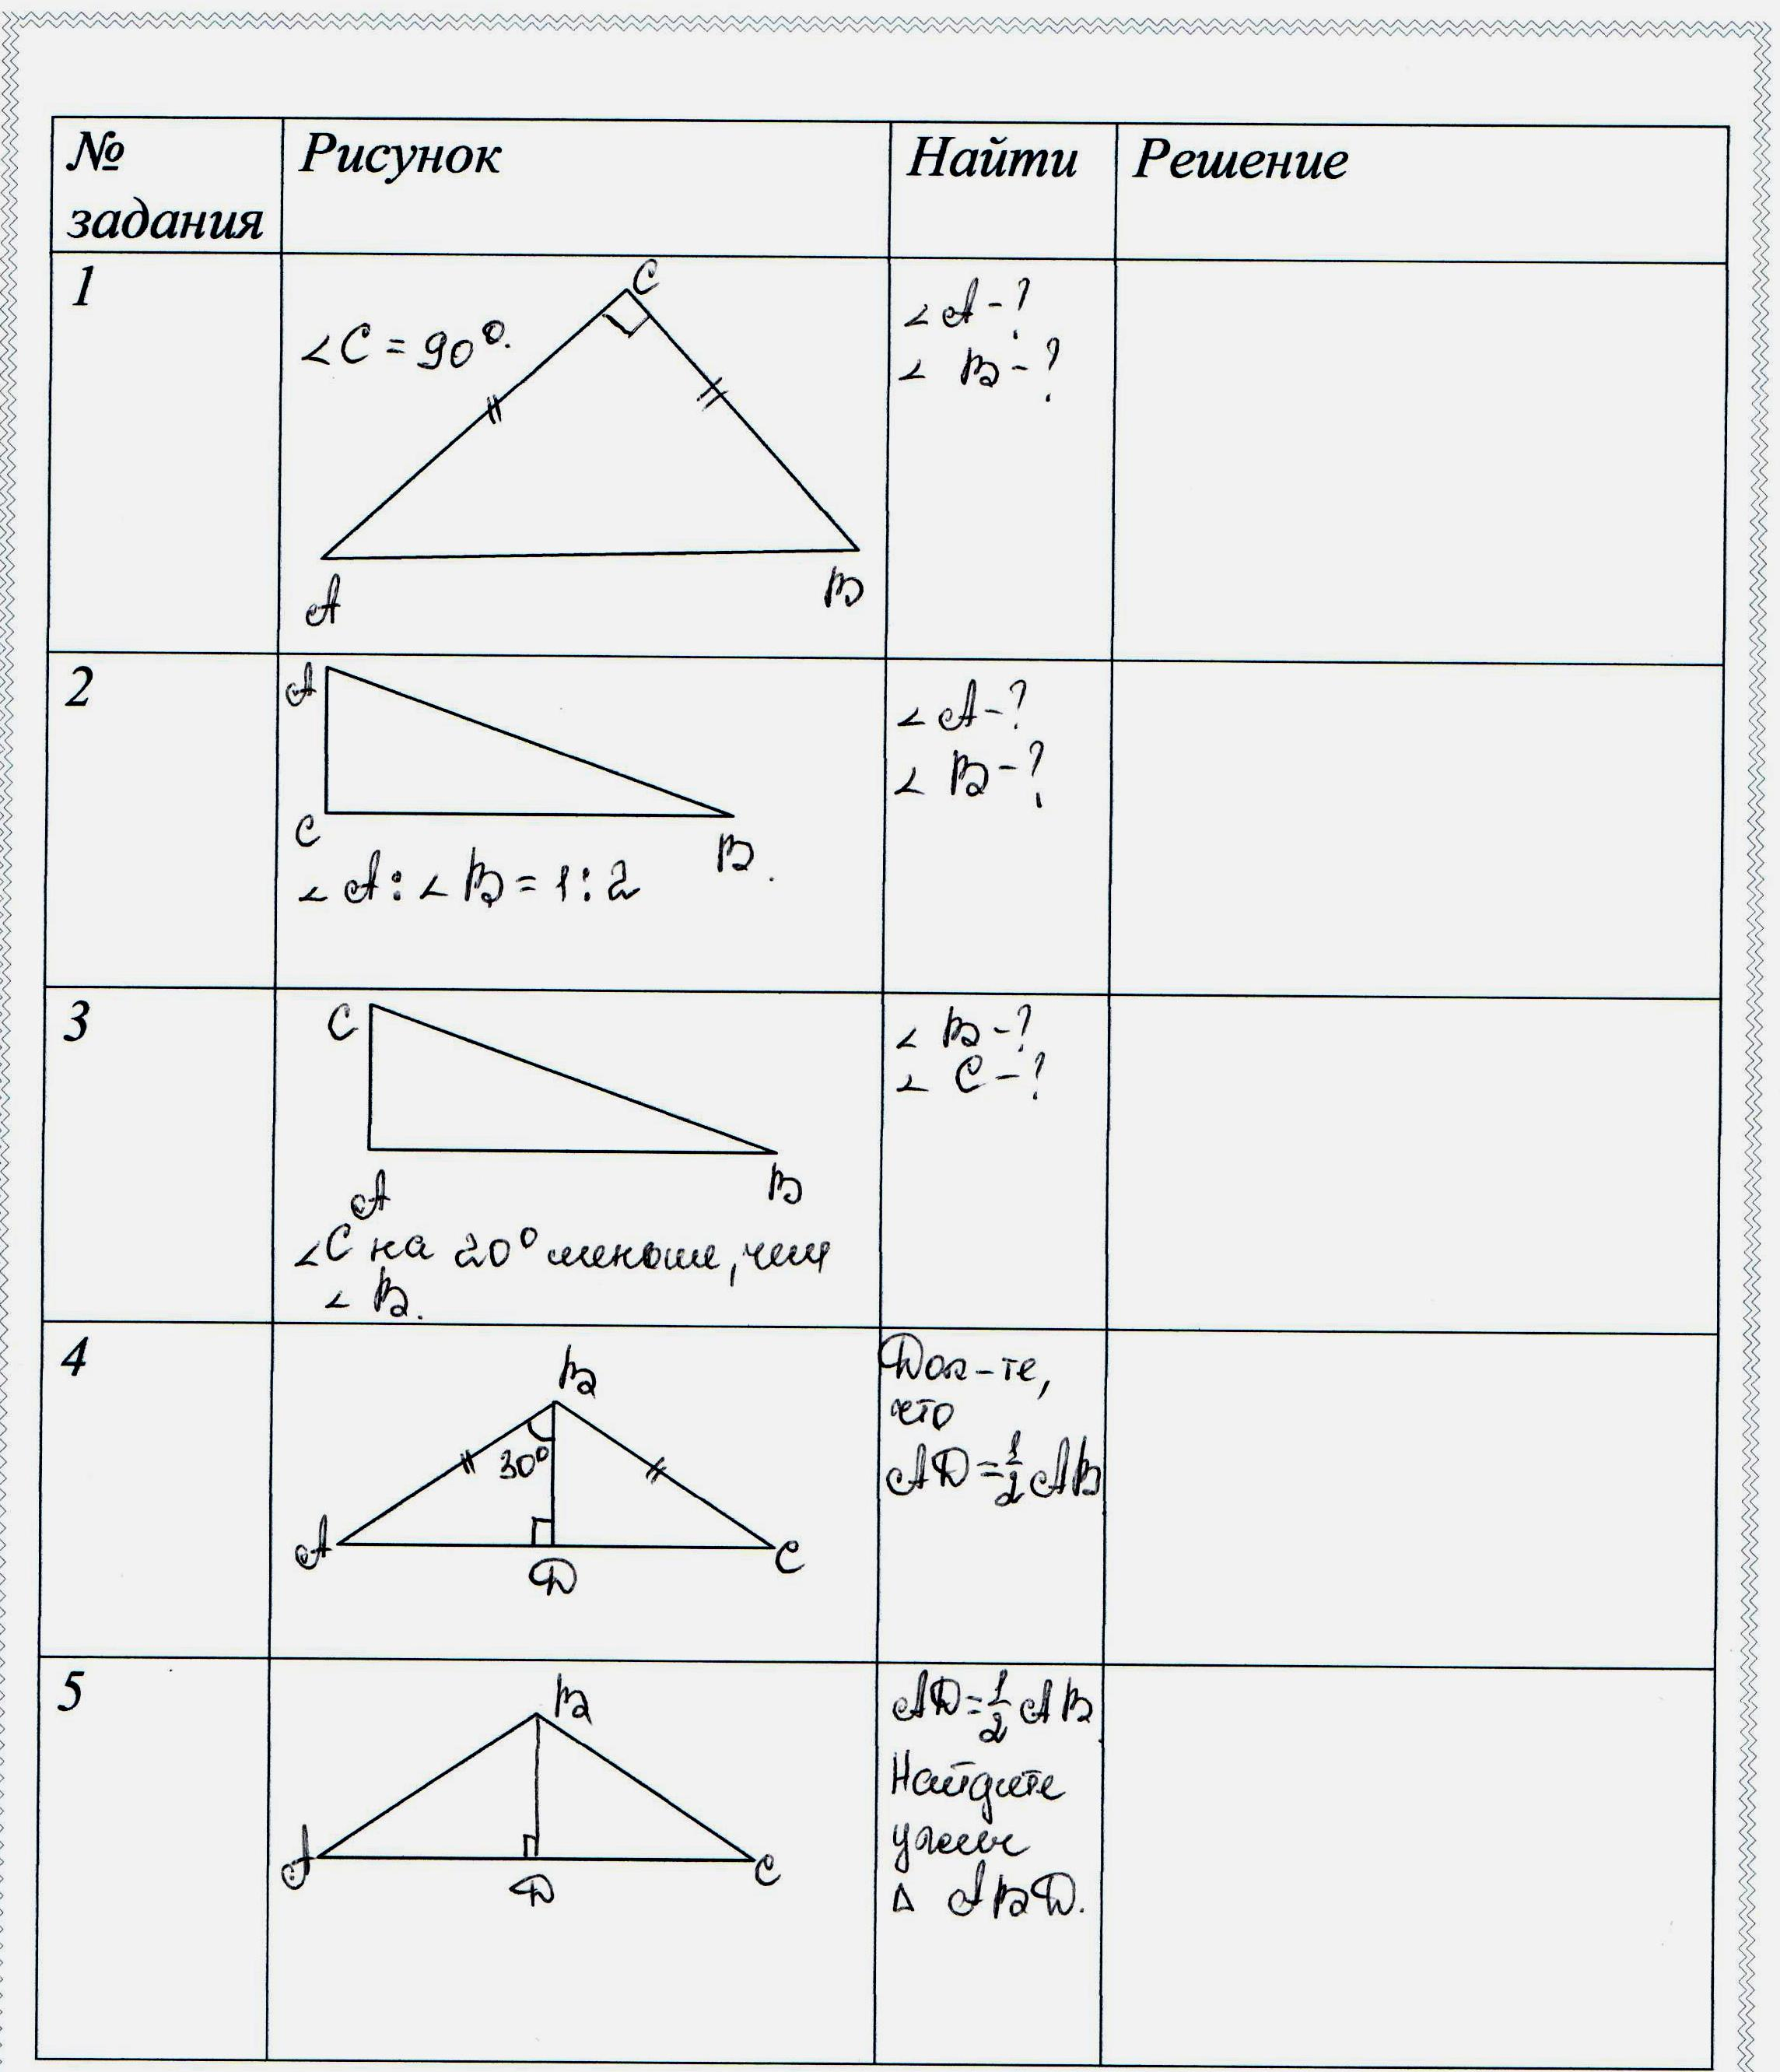 № задания
Рисунок
Найти
Решение
1
∠C = 90°.
C
A
B
∠A - ?
∠B - ?
2
A
C
B.
∠A : ∠B = 1 : 2
∠A - ?
∠B - ?
3
C
A
B
∠C на 20° меньше, чем
∠B.
∠B - ?
∠C - ?
4
B
30°
A
D
C
Док-те,
что
AD = 1/2 AB
5
B
A
D
C
AD = 1/2 AB
Найдите
углы
Δ ABD.